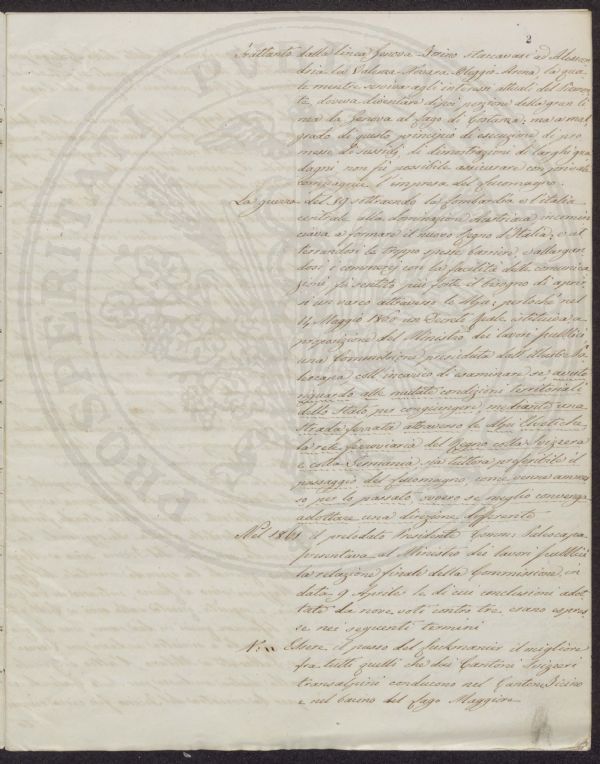 2
Frattanto dalla linea Genova-Torino staccavasi ad Alessan
dria la Valenza-Novara-Oleggio-Arona, la qua
le mentre serviva agli interessi attuali del Piemon
te doveva diventare di poi porzione della gran li
nea da Genova al Lago di Costanza; ma a mal
grado di questo principio di esecuzione, di pro
messe di sussidj, di dimostrazioni di larghi gua
dagni non fu possibile assicurare con private
compagnie l'impresa del Lucomagno.
La guerra del 59 sottraendo la Lombardia e l'Italia
centrale alla dominazione Austriaca incomin
ciava a formare il nuovo Regno d'Italia, e at
terrandosi le troppo spesse barriere, e allargan
dosi i commerzj con la facilità delle comunica
zioni fu sentito più forte il bisogno di aprir
si un varco attraverso le Alpi; perlochè nel
14 Maggio 1860 un Decreto Reale istituiva a
proposizione del Ministro dei lavori pubblici
una Commissione presieduta dall'Illustre Pa
leocapa coll'incarico di esaminare se avuto
riguardo alle mutate condizioni territoriali
dello Stato, per congiungere mediante una
strada ferrata attraverso le Alpi Elvetiche
la rete ferroviaria del Regno colla Svizzera
e colla Germania, sia tuttora preferibile il
passaggio del Lucomagno, come venne ammes
so per lo passato, ovvero se meglio convenga
adottare una direzione differente
Nel 1861 il prelodato Presidente Comm. Paleocapa
presentava al Ministro dei lavori pubblici
la relazione finale della Commissione in
data 9 Aprile le di cui conclusioni adot
tate da nove voti contro tre erano espres
se nei seguenti termini
Essere il passo del Luckmanier il migliore
fra tutti quelli che dai Cantoni Svizzeri
transalpini conducono nel Canton Ticino
e nel bacino del Lago Maggiore
PROSPERITATI PUBLICAE